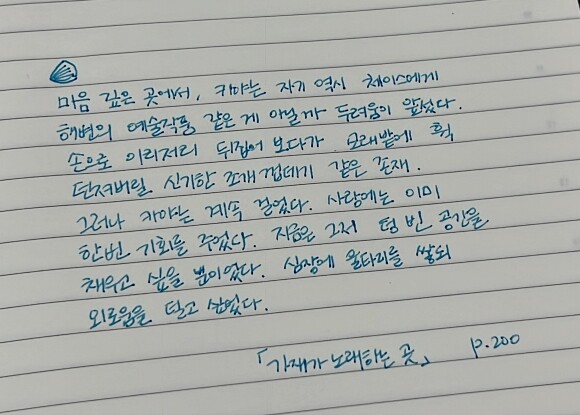 마음 깊은 곳에서, 카야는 자기 역시 체이스에게
해변의 예술작품 같은 게 아닐까 두려움이 앞섰다.
손으로 이리저리 뒤집어 보다가 모래밭에 휙
던져버릴 신기한 조개껍데기 같은 존재.
그러나 카야는 계속 걸었다. 사랑에는 이미
한번 기회를 주었다. 지금은 그저 텅 빈 공간을
채우고 싶을 뿐이었다. 심장에 울타리를 쌓되
외로움을 덜고 싶었다.
「가재가 노래하는 곳」 p.200